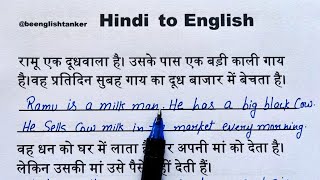 @beenglishtanker
Hindi to English
रामू एक दूधवाला है। उसके पास एक बड़ी काली गाय
है।वह प्रतिदिन सुबह गाय का दूध बाजार में बेचता है।
Ramu is a milk man. He has a big black Cow.
He Sells Cow milk in market every morning.
वह धन को घर में लाता है अपनी मां को देता है।
लेकिन उसकी मां उसे नहीं देती हैं।